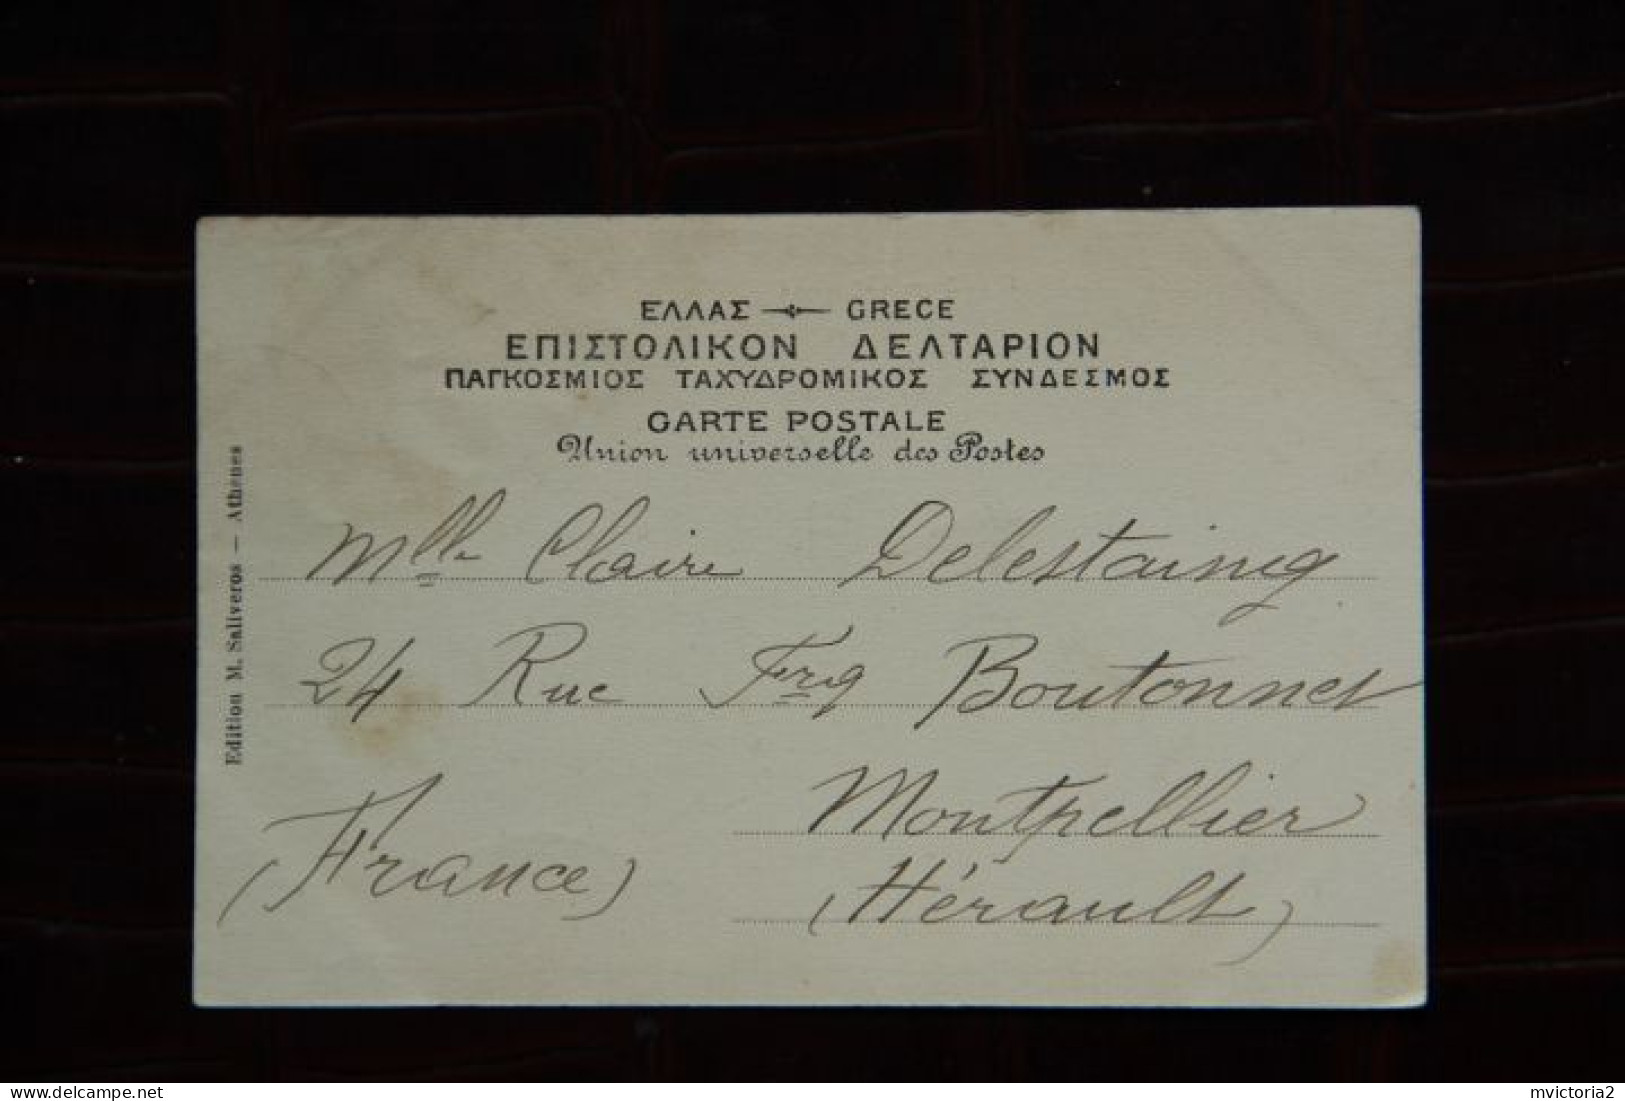 ΕΛΛΑΣ GRECE
ΕΠΙΣΤΟΛΙΚΟΝ ΔΕΛΤΑΡΙΟΝ
ΠΑΓΚΟΣΜΙΟΣ ΤΑΧΥΔΡΟΜΙΚΟΣ ΣΥΝΔΕΣΜΟΣ
CARTE POSTALE
Union universelle des Postes
Edition M. Saliveros — Athenes
Mlle Claire Delestaing
24 Rue Frg Boutonnet
Montpellier
(France) (Hérault)
delcampe.net
mvictoria2